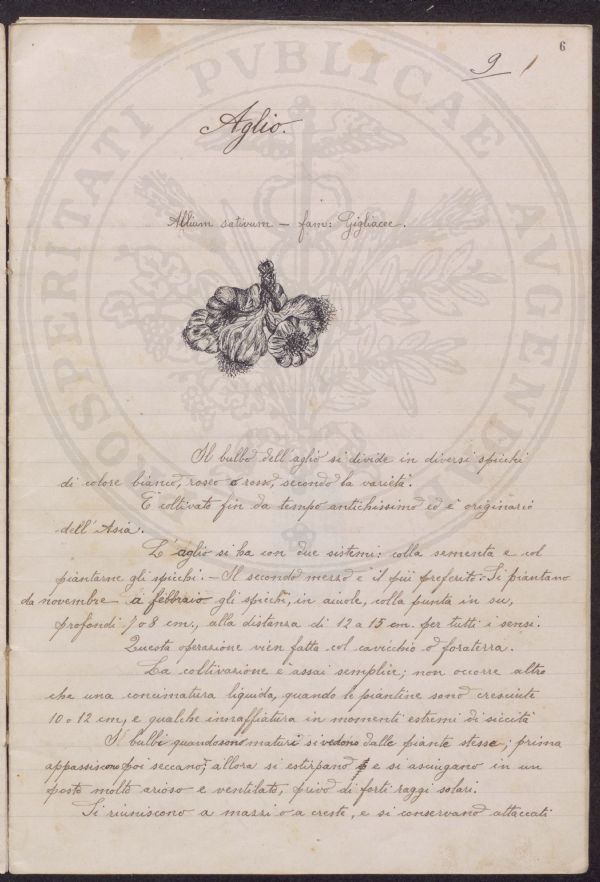 6
9
Aglio.
Allium sativum — fam: Gigliacee.
Il bulbo dell'aglio si divide in diversi spicchi
di colore bianco, roseo o rosso, secondo la varietà.
È coltivato fin da tempo antichissimo ed è originario
dell'Asia.
L'aglio si ha con due sistemi: colla sementa e col
piantarne gli spicchi. — Il secondo mezzo è il più preferito. Si piantano
da novembre a febbraio gli spicchi, in aiuole, colla punta in su,
profondi 7 o 8 cm., alla distanza di 12 a 15 cm. per tutti i sensi.
Questa operazione vien fatta col cavicchio o foraterra.
La coltivazione è assai semplice; non occorre altro
che una concimatura liquida, quando le piantine sono cresciute
10 o 12 cm, e qualche innaffiatura in momenti estremi di siccità
Il bulbi quando sono maturi si vedono dalle piante stesse; prima
appassiscono poi seccano; allora si estirpano e si asciugano in un
posto molto arioso e ventilato, privo di forti raggi solari.
Si riuniscono a mazzi o a creste, e si conservano attaccati
PROSPERITATI PVBLICAE AVGENDAE